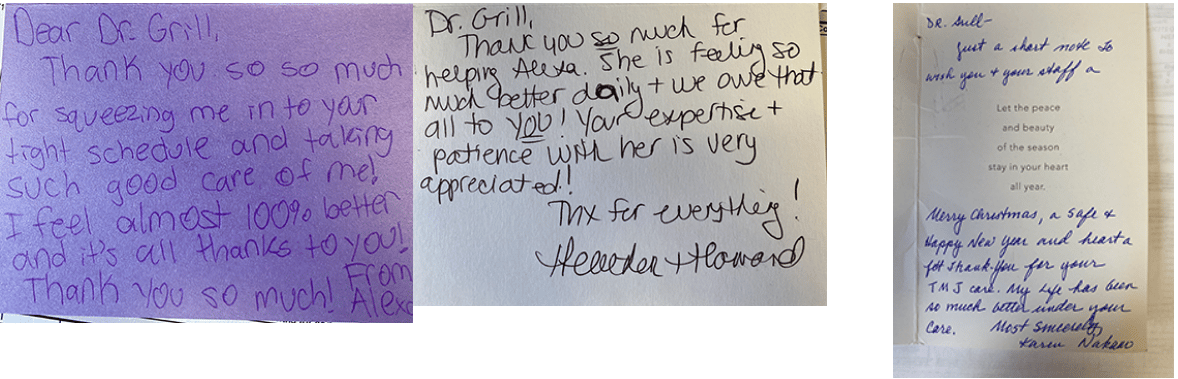 Dear Dr. Grill,
Thank you so so much
for squeezing me in to your
tight schedule and taking
such good care of me!
I feel almost 100% better
and it's all thanks to you!
Thank you so much! From
Alexa
Dr. Grill,
Thank you so much for
helping Alexa. She is feeling so
much better daily + we owe that
all to you! Your expertise +
patience with her is very
appreciated!
Thx for everything!
+ Howard
DR. Grill-
Just a short note to
wish you + your staff a
Let the peace
and beauty
of the season
stay in your heart
all year.
Merry Christmas, a safe &
Happy New Year and heart a
felt Thank-You for your
TMJ care. My Life has been
so much better under your
Care. Most Sincerely,
Karen Nakano